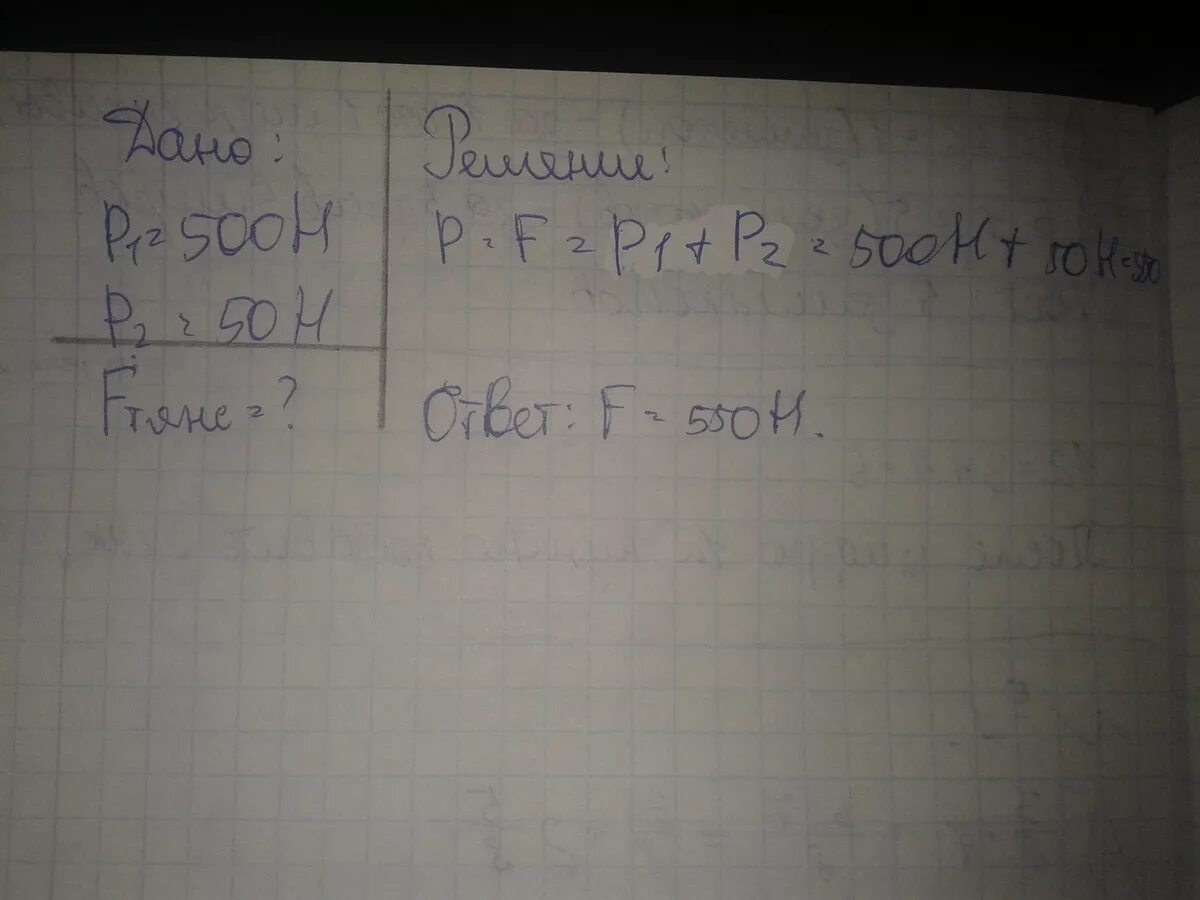 Дано:
P1 = 500Н
P2 = 50Н
Fтяж = ?
Решение:
P = F = P1 + P2 = 500Н + 50Н = 550
Ответ: F = 550Н.